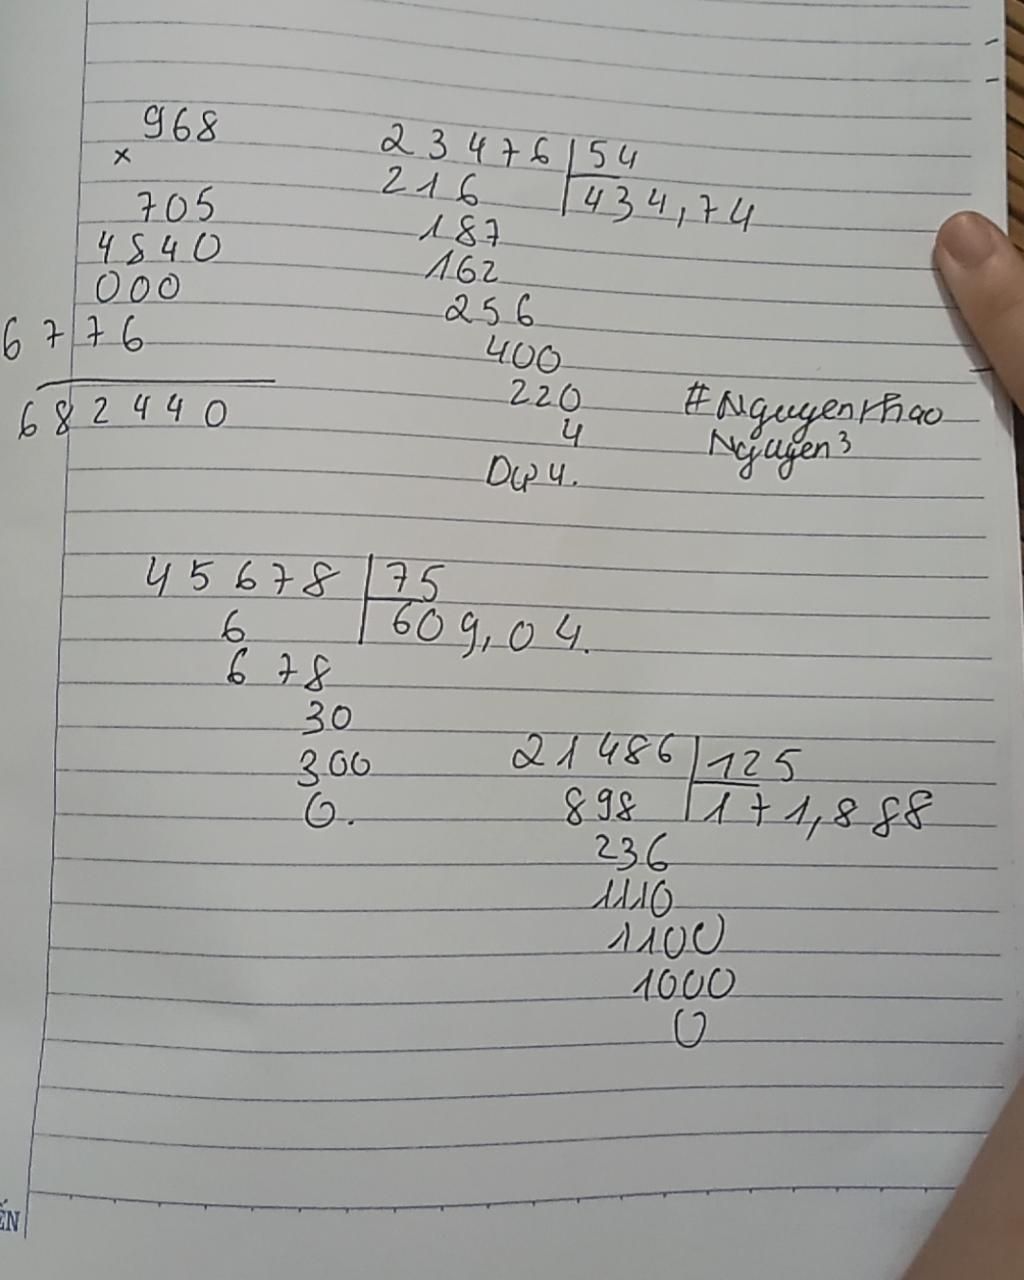 968
×
705
4840
000
6776
682440
23476 54
216 434,74
187
162
256
400
220
4
Dư 4.
#Nguyenthao
Nguyen3
45678 75
6 609,04.
678
30
300
0.
21486 125
898 171,888
236
1110
1100
1000
0
ẾN